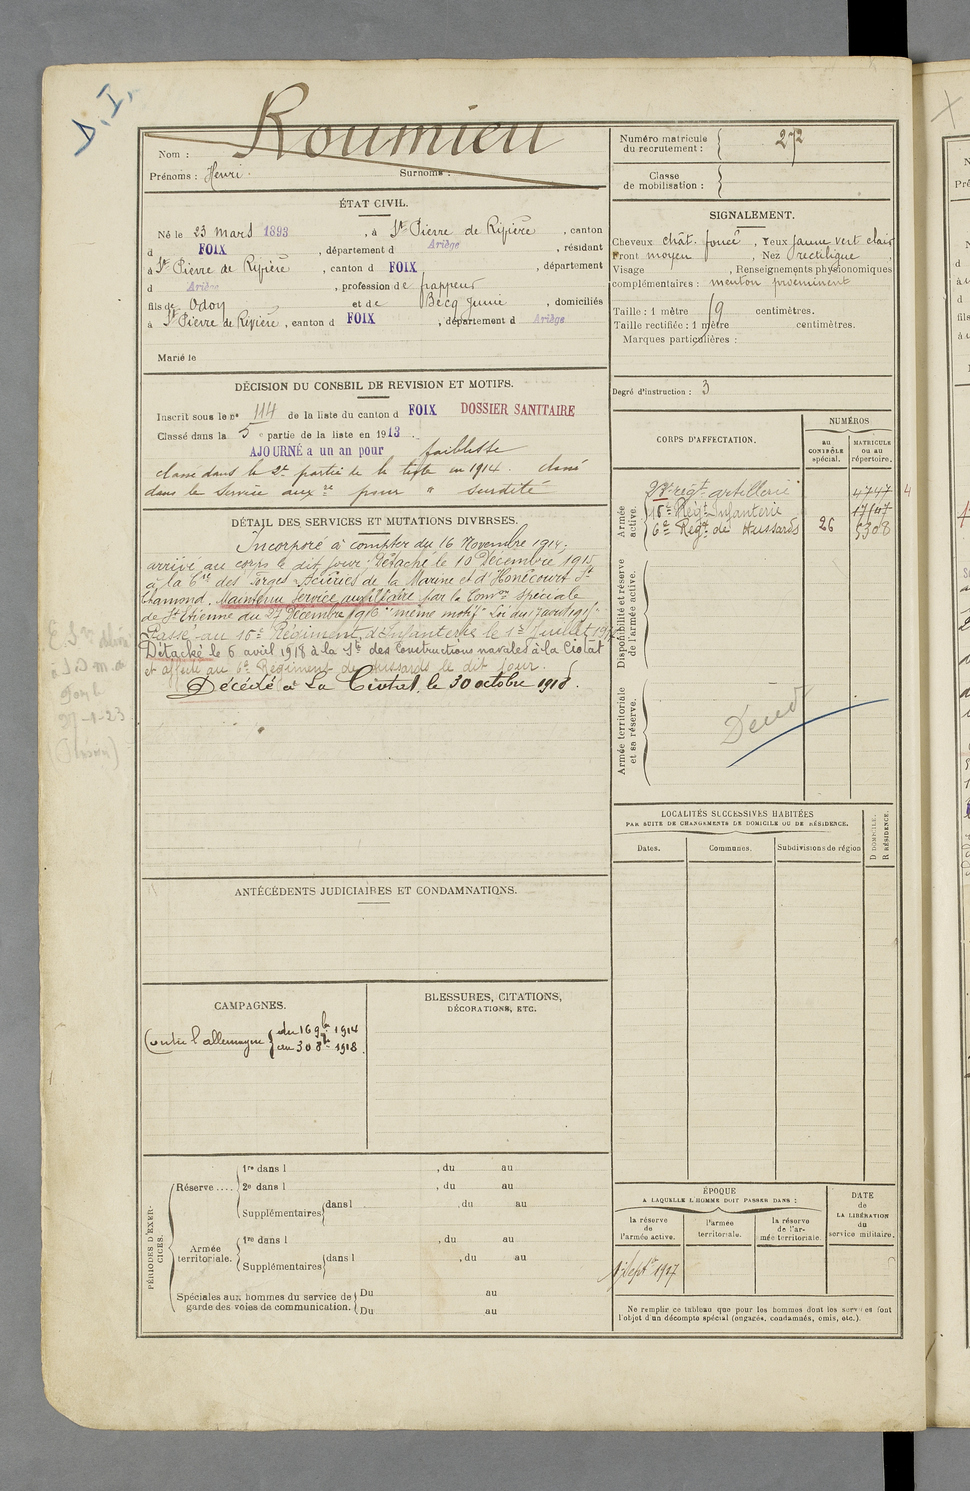 D.I.
Roumieu
Nom :
Prénoms : Henri. Surnoms :
Numéro matricule du recrutement : 272
Classe de mobilisation :
ÉTAT CIVIL.
Né le 23 mars 1893, à St Pierre de Rivière, canton
d FOIX, département d Ariège, résidant
à St Pierre de Rivière, canton d FOIX, département
d Ariège, profession de frappeur
fils de Odon et de Becq Junie, domiciliés
à St Pierre de Rivière, canton d FOIX, département d Ariège
Marié le
SIGNALEMENT.
Cheveux chât. foncé, Yeux jaune vert clair
Front moyen, Nez rectiligne,
Visage , Renseignements physionomiques
complémentaires : menton proéminent
Taille : 1 mètre 59 centimètres.
Taille rectifiée : 1 mètre centimètres.
Marques particulières :
Degré d'instruction : 3
DÉCISION DU CONSEIL DE REVISION ET MOTIFS.
Inscrit sous le n° 114 de la liste du canton d FOIX DOSSIER SANITAIRE
Classé dans la 5e partie de la liste en 1913.
AJOURNÉ a un an pour faiblesse
classé dans la 2e partie de la liste en 1914. classé
dans le Service auxre pour " surdité
DÉTAIL DES SERVICES ET MUTATIONS DIVERSES.
Incorporé à compter du 16 Novembre 1914.
arrivé au corps le dit jour. Détaché le 10 Décembre 1915
à la Cie des Forges Aciéries de la Marine et d'Homécourt St
Chamond. Maintenu Service auxiliaire par la Comon spéciale
de St Etienne du 27 Décembre 1916 "même motif" Loi du 17 aout 1915.
Passé au 10e Régiment d'Infanterie le 1er Juillet
Détaché le 6 avril 1918 à la Sté des Constructions navales à la Ciotat
et affecté au 6e Régiment de Hussards le dit jour.
Décédé à La Ciotat, le 30 octobre 1918.
CORPS D'AFFECTATION.
NUMÉROS
AU CONTRÔLE spécial.
MATRICULE OU AU répertoire.
Armée active.
régt artillerie 4747 4
Régt Infanterie 17147
6e Régt de Hussards 26 5308
Disponibilité et réserve de l'armée active.
Armée territoriale et sa réserve.
Décédé
LOCALITÉS SUCCESSIVES HABITÉES
PAR SUITE DE CHANGEMENTS DE DOMICILE OU DE RÉSIDENCE.
Dates. Communes. Subdivisions de région
D DOMICILE. R RÉSIDENCE.
ANTÉCÉDENTS JUDICIAIRES ET CONDAMNATIONS.
CAMPAGNES.
Contre l'allemagne { du 16 9bre 1914
au 30 8bre 1918.
BLESSURES, CITATIONS,
DÉCORATIONS, ETC.
PÉRIODES D'EXERCICES.
Réserve .... 1re dans l , du au
2e dans l , du au
Supplémentaires dans l , du au
Armée territoriale. 1re dans l , du au
Supplémentaires dans l , du au
Spéciales aux hommes du service de garde des voies de communication.
Du au
Du au
ÉPOQUE
A LAQUELLE L'HOMME DOIT PASSER DANS :
la réserve de l'armée active.
l'armée territoriale.
la réserve de l'armée territoriale.
DATE de LA LIBÉRATION du service militaire.
1er Septe 1917
Ne remplir ce tableau que pour les hommes dont les services font
l'objet d'un décompte spécial (engagés, condamnés, omis, etc.).